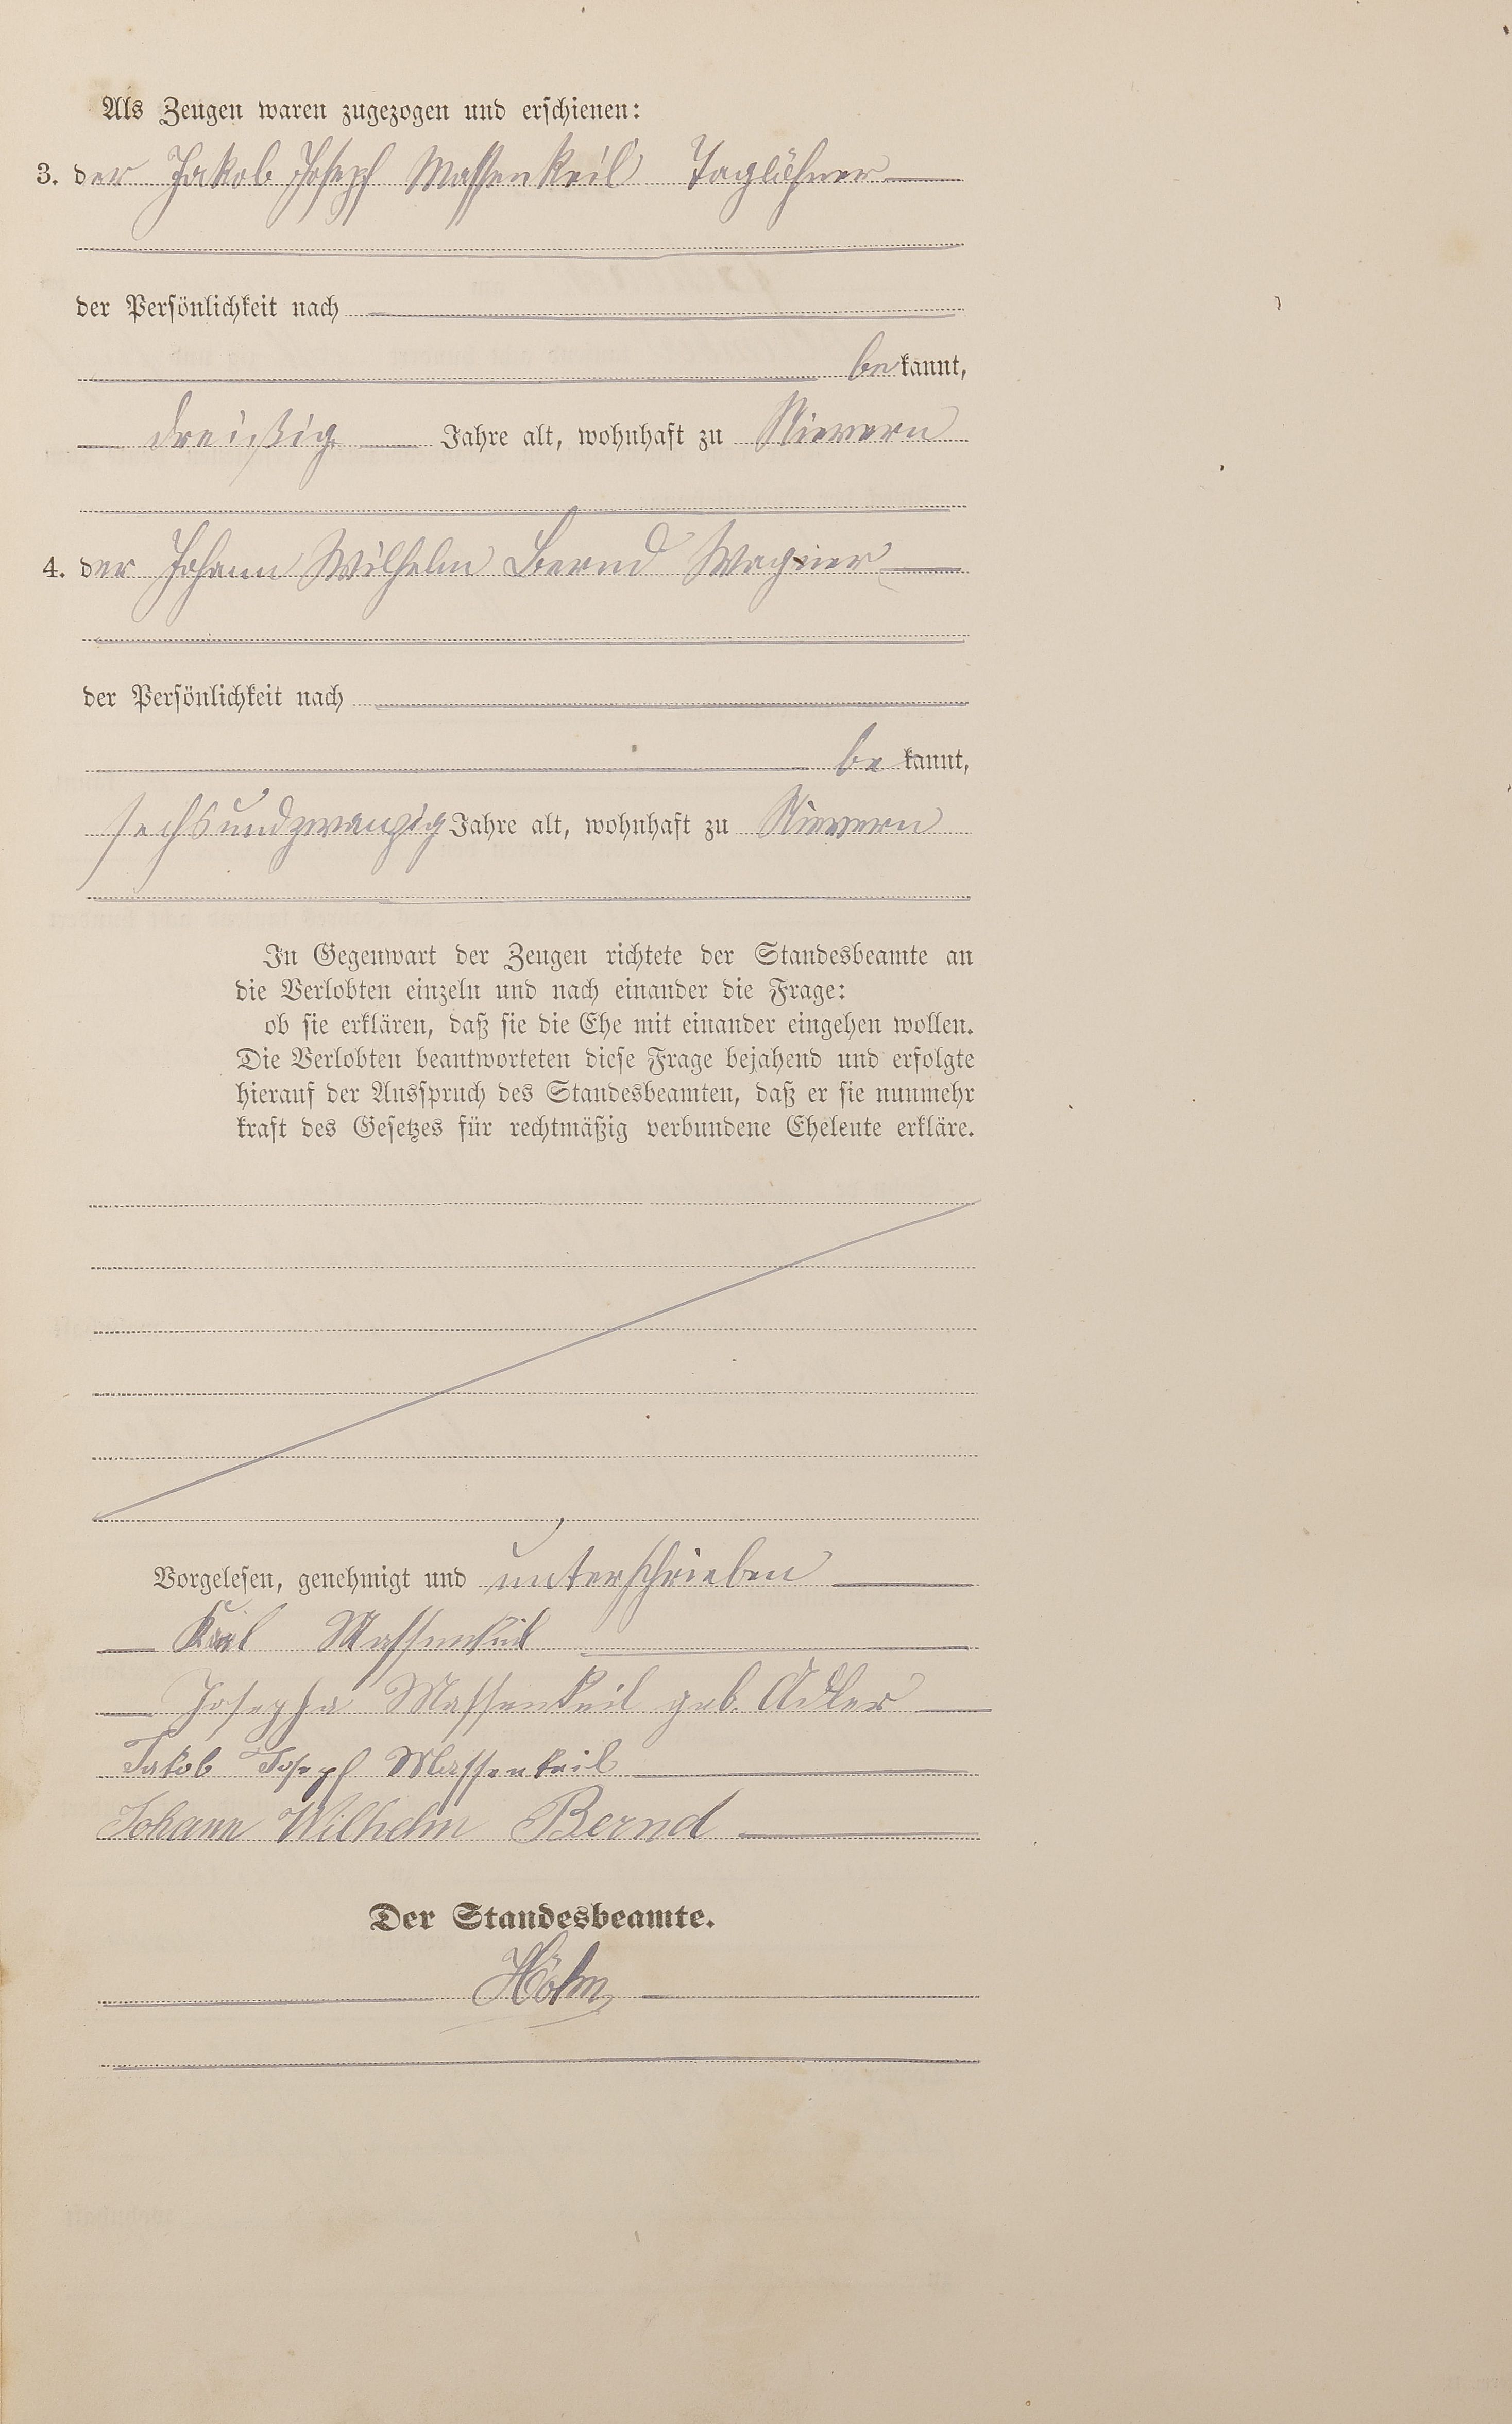 Als Zeugen waren zugezogen und erschienen:
3. der Jakob Joseph Massenkeil Taglöhner
der Persönlichkeit nach
bekannt,
dreißig Jahre alt, wohnhaft zu Nievern
4. der Johann Wilhelm Bernd Wagner
der Persönlichkeit nach
be kannt,
sechsundzwanzig Jahre alt, wohnhaft zu Nievern
In Gegenwart der Zeugen richtete der Standesbeamte an
die Verlobten einzeln und nach einander die Frage:
ob sie erklären, daß sie die Ehe mit einander eingehen wollen.
Die Verlobten beantworteten diese Frage bejahend und erfolgte
hierauf der Ausspruch des Standesbeamten, daß er sie nunmehr
kraft des Gesetzes für rechtmäßig verbundene Eheleute erkläre.
Vorgelesen, genehmigt und unterschrieben
Karl Massenkeil
Josepha Massenkeil geb. Adler
Jakob Joseph Massenkeil
Johann Wilhelm Bernd
Der Standesbeamte.